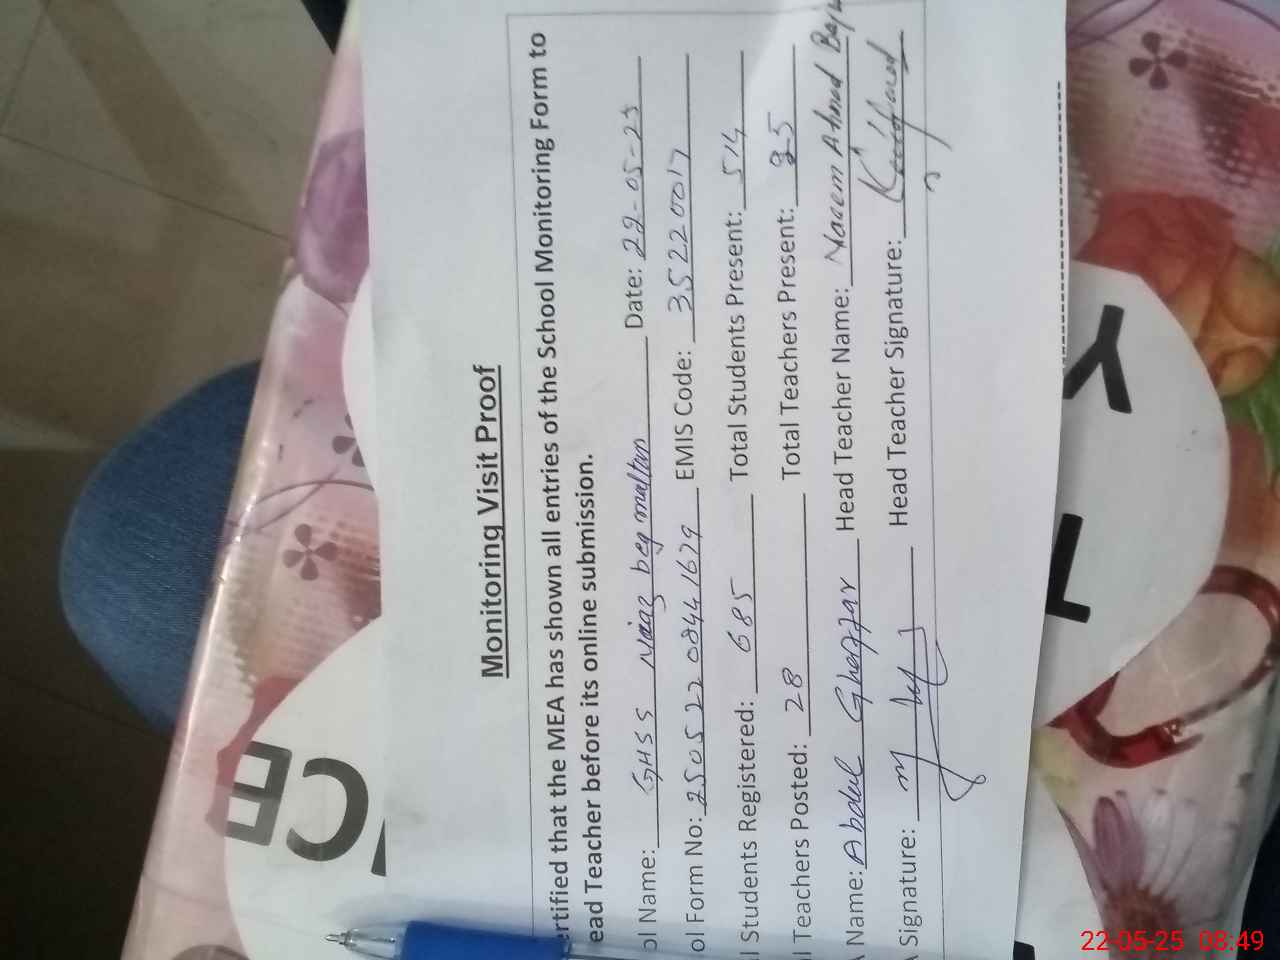 Monitoring Visit Proof
ertified that the MEA has shown all entries of the School Monitoring Form to
ead Teacher before its online submission.
ol Name: GHSS Niaz beg multan Date: 22-05-25
ol Form No: 2505220844 1679 EMIS Code: 35220017
l Students Registered: 685 Total Students Present: 514
l Teachers Posted: 28 Total Teachers Present: 25
A Name: Abdul Ghaffar Head Teacher Name: Naeem Ahmad
A Signature: Head Teacher Signature:
ICE
LY
22-05-25 08:49